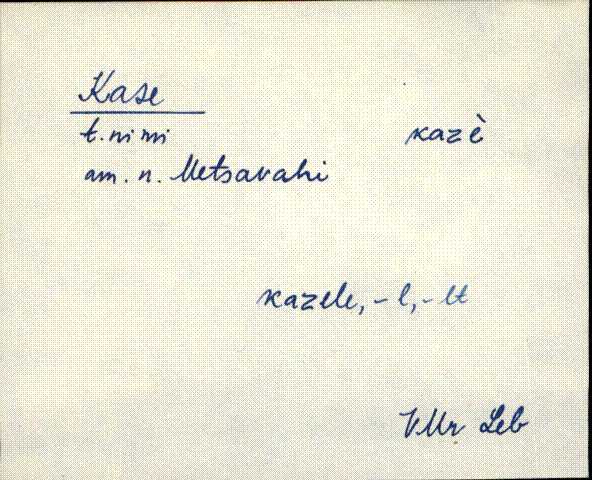 Kase
t. nimi kazè
am. n. Metsavahi
kazele, -l, -lt
VMr Leb